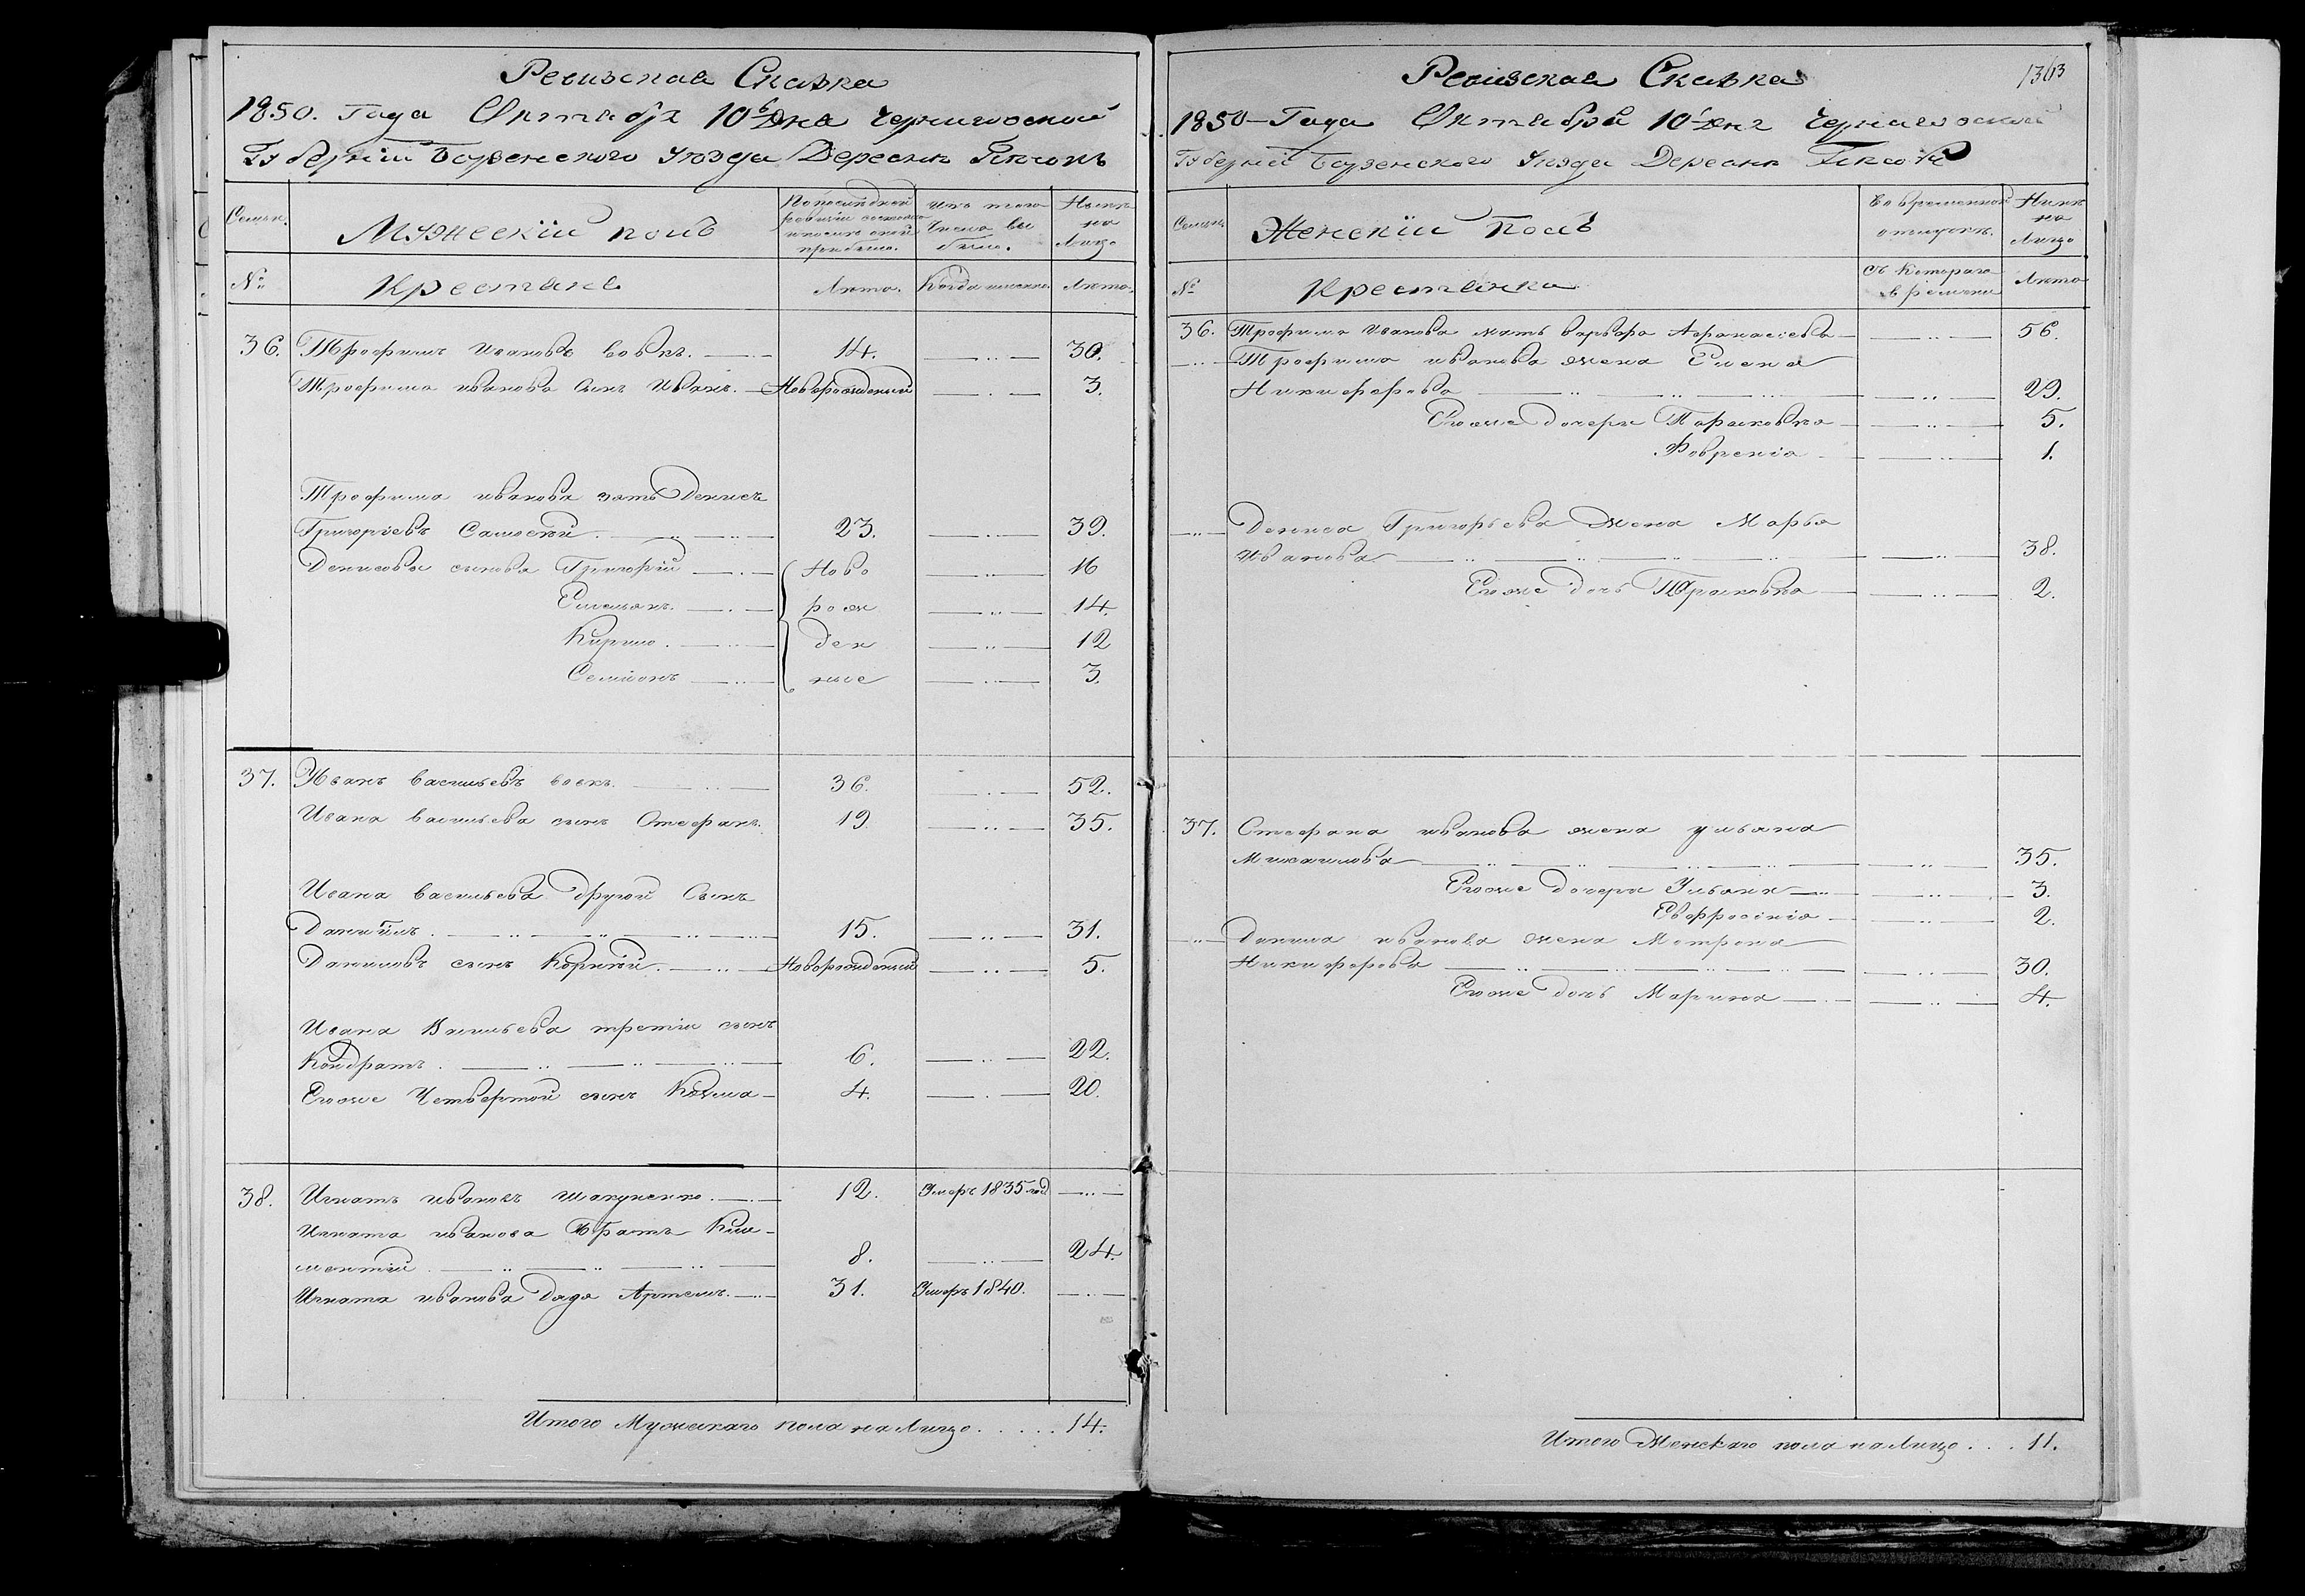 Ревизская Сказка
1850. Года Октября 10 дня Черниговской
Губерніи Борзенского Уезда Деревни
Семьи.
Мужескій полъ
По последней ревизіи состояло и после оной прибыло.
Изъ того числа выбыло.
Ныне на Лицо
№
Крестьяне
Лета.
Когда именно.
Лета.
36. Трофимъ Ивановъ Вовкъ. 14. 30.
Трофима Иванова сынъ Иванъ. Новорожденный 3.
Трофима Иванова зять Денисъ
Григорьевъ 23. 39.
Денисовы сыновья Григорій Ново 16
Емельянъ. рож 14.
Кирило. ден 12
Семіонъ ные 3.
37. Иванъ Васильевъ Вовкъ. 36. 52.
Ивана Васильева сынъ Стефанъ. 19 35.
Ивана Васильева другой Сынъ
Даніилъ. 15. 31.
Даниловъ сынъ Корній. Новорожденный 5.
Ивана Васильева третій сынъ
Кондратъ. 6. 22.
Егоже Четвертой сынъ Козма 4. 20.
38. Игнатъ Ивановъ Шакуненко. 12. Умеръ 1835 год
Игната Иванова Братъ Кли-
ментій 8. 24.
Игната Иванова Дядя Артемъ. 31. Умеръ 1840.
Итого Мужескаго пола на Лицо . . . . . 14.
1363
Ревизская Сказка
1850 Года Октября 10 дня Черниговской
Губерніи Борзенского Уезда Деревни
Семьи.
Женскій Полъ
Во временной отлучке.
Ныне на Лицо
№
Крестьянки
Съ Котораго времени
Лета
36. Трофима Иванова мать Варвара Афанасіева 56.
Трофима Иванова жена Елена
Никифорова 29.
Егоже дочери Парасковія 5.
Февренія 1.
Дениса Григорьева Жена Марья
Иванова 38.
Егоже дочь Парасковія 2.
37. Стефана Иванова жена Ульяна
Михаилова 35.
Егоже дочери Ульяна 3.
Евфросінія 2.
Данила Иванова жена Матрона
Никифорова 30.
Егоже дочь Марина 4.
Итого Женскаго пола на Лицо . . . 11.